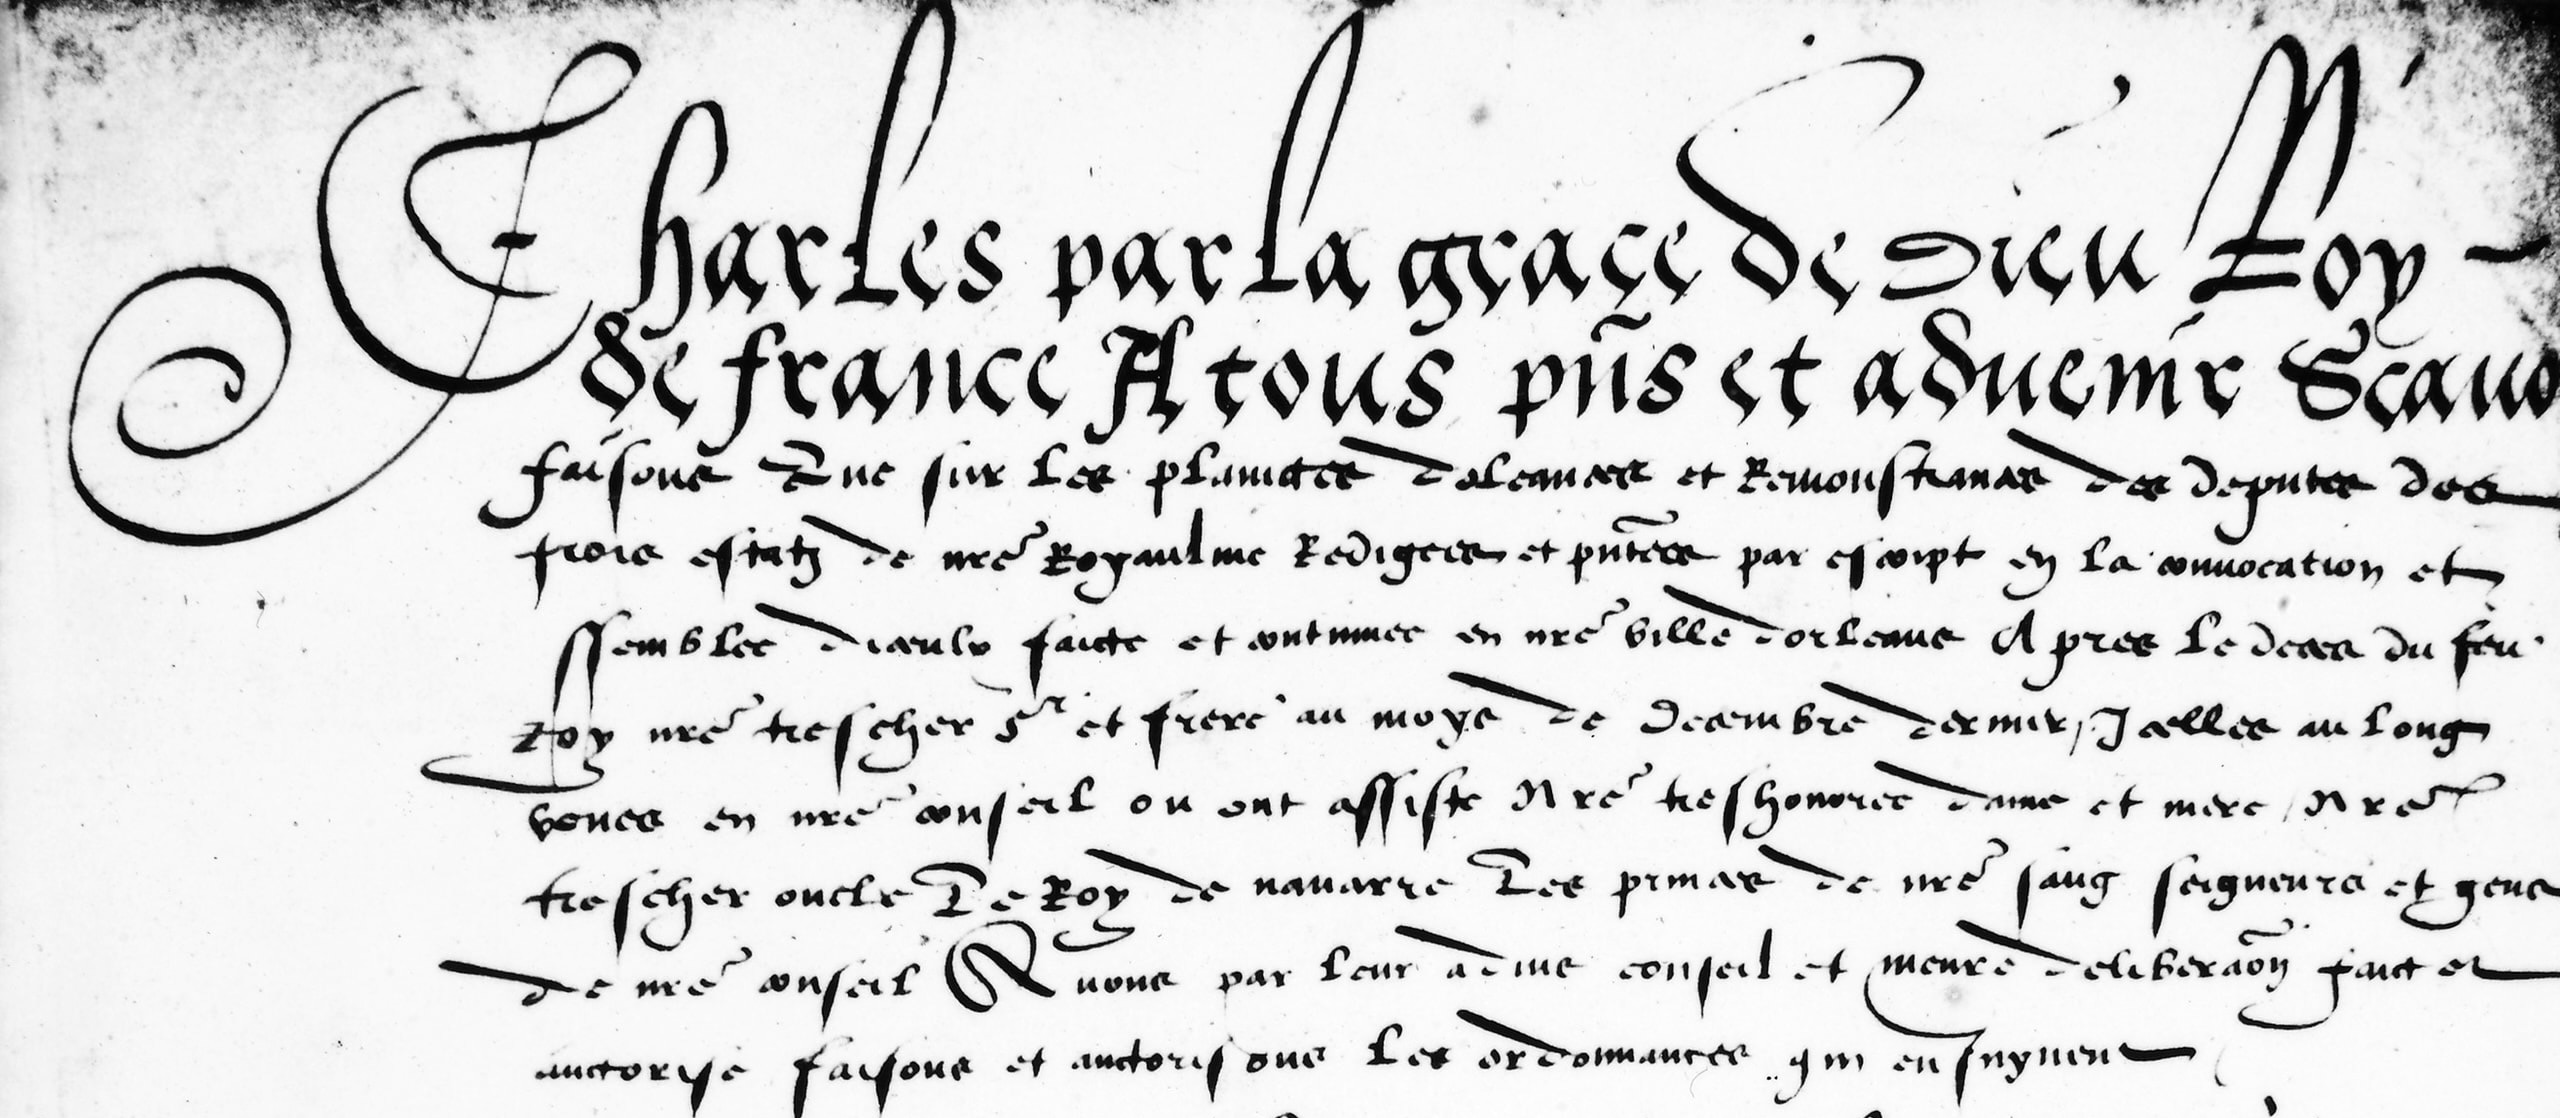 Charles par la grace de Dieu Roy
de france A tous pñs et aduenir Scauo
faisons Que sur les plainctes doleances et Remonstrances des deputes des
trois estatz de nrẽ Royaulme Redigees et pñtees par escript en la conuocation et
ssemblee diceulx faicte et continuee en nrẽ ville dorleans Apres le deces du feu
Roy nrẽ trescher sr et frere au moys de decembre dernier, Icelles au long
veues en nrẽ conseil ou ont assiste Nrẽ treshonoree dame et mere, Nrẽ
trescher oncle Le Roy de nauarre Les princes de nrẽ sang seigneurs et gens
de nrẽ conseil Auons par leur aduis conseil et meure deliberaõn faict et
auctorise faisons et auctorisons les ordonnances qui ensuyuent